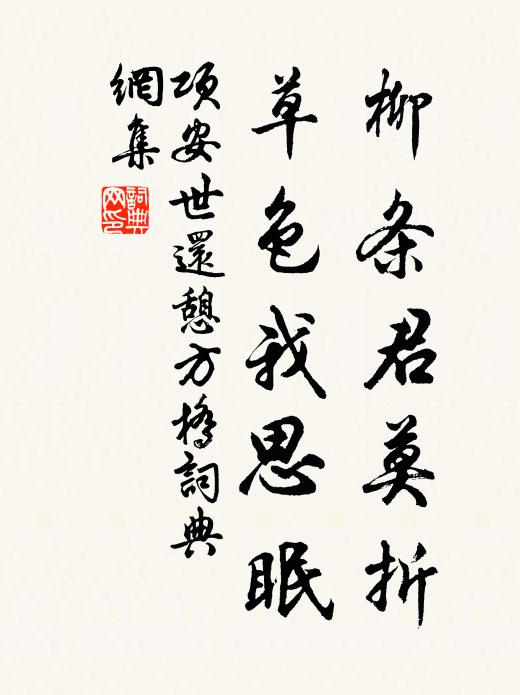 柳条君莫折
草色我思眠
项安世還憩方橋詞典
網集
詞典
网印